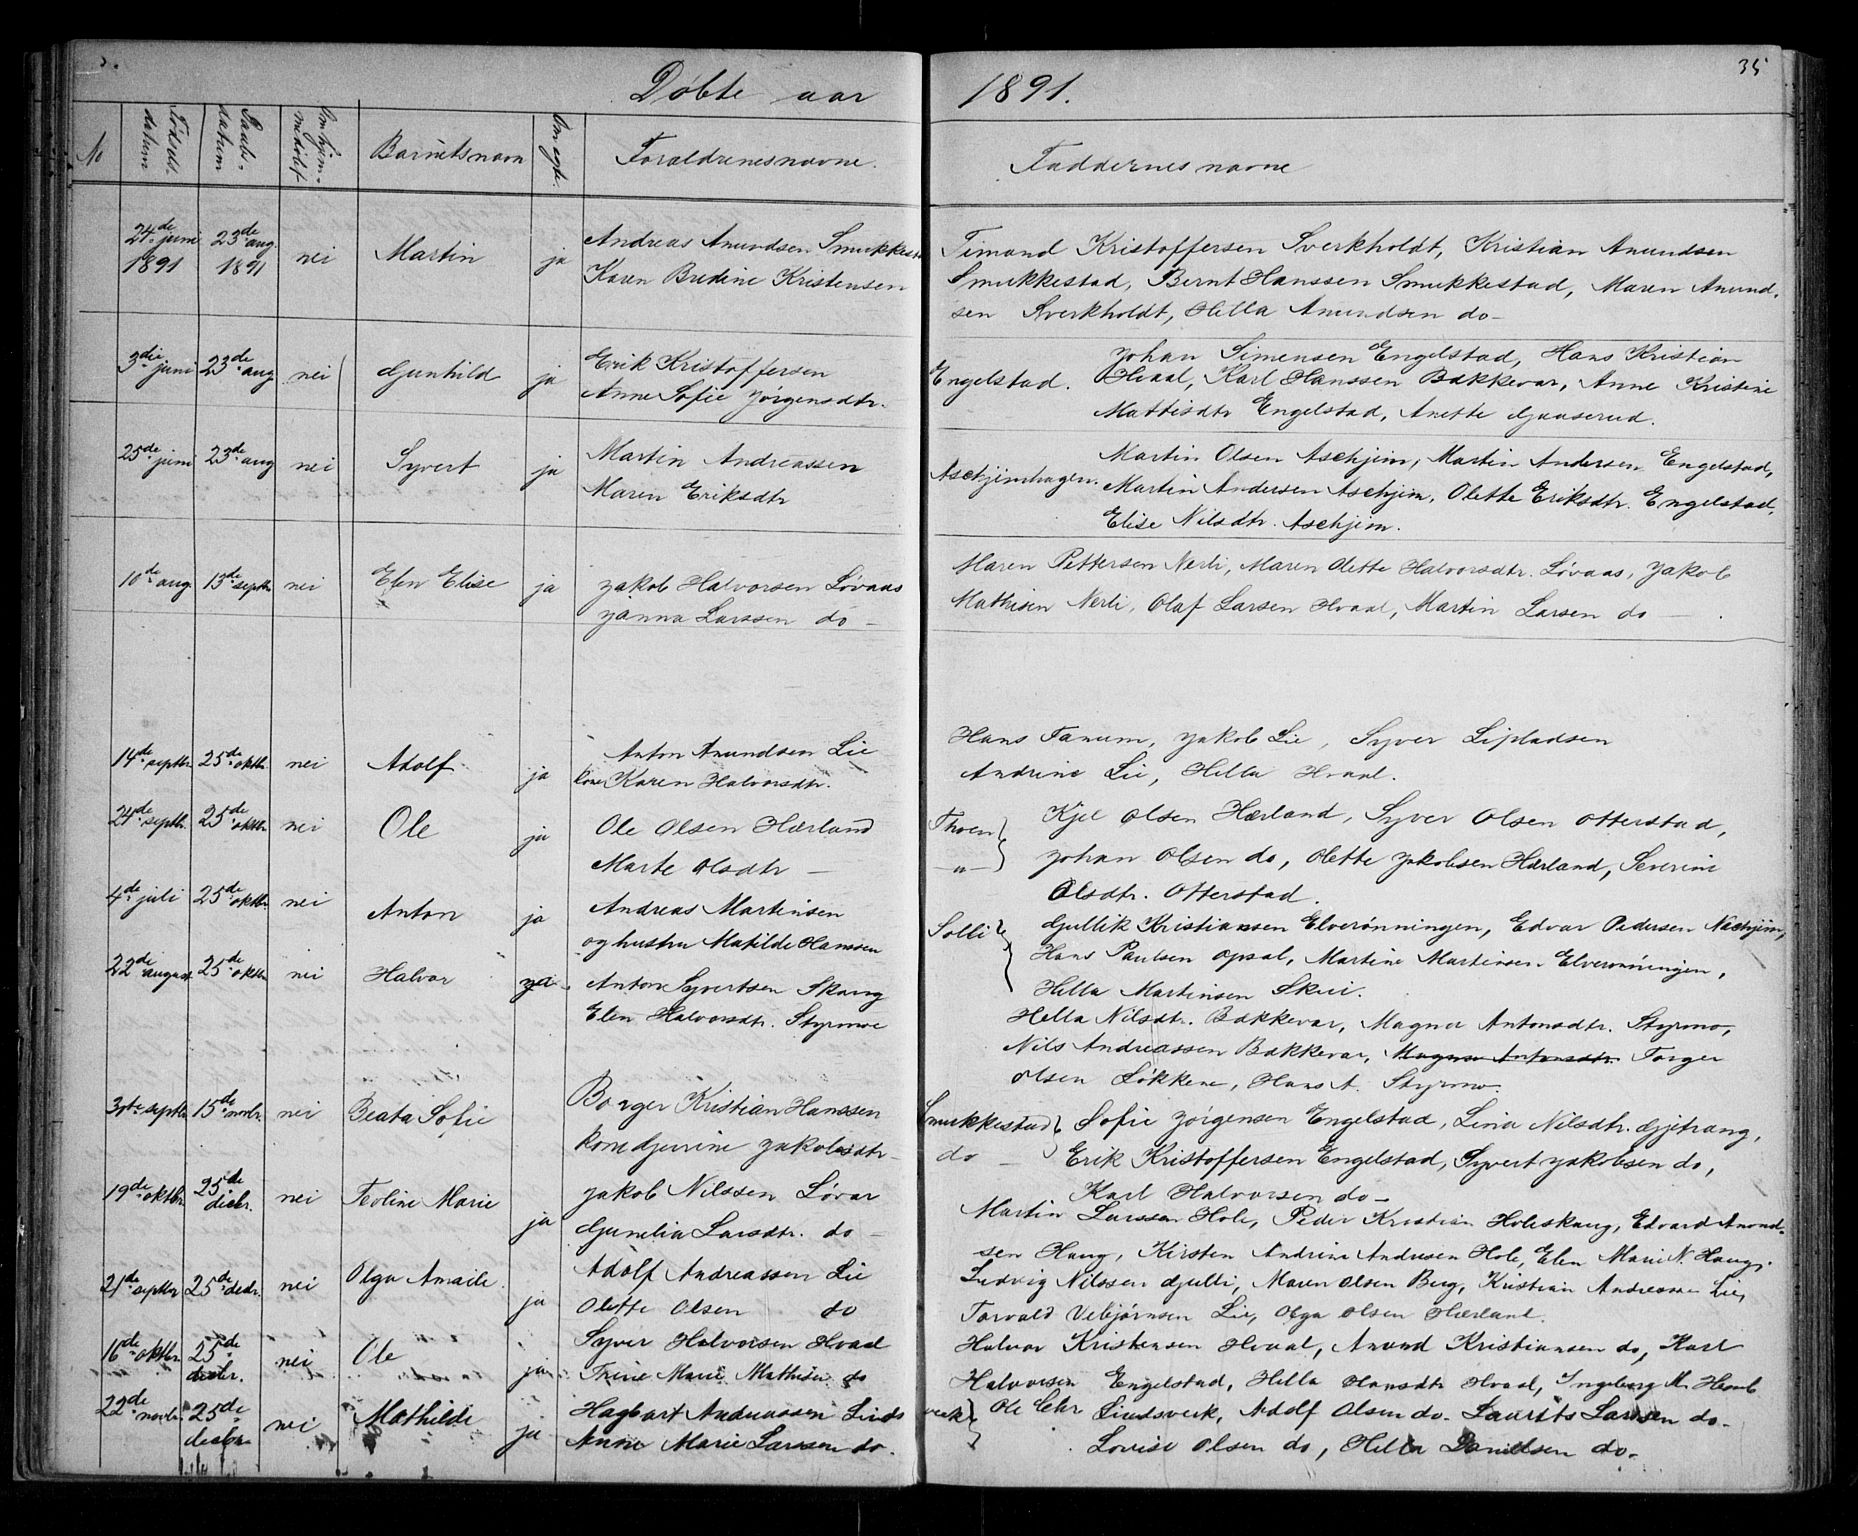 Døbte aar 1891.
35
No
Fødsels-
datum
Daabs-
datum
Om hjem-
medøbt
Barnets navn
Om egte.
Forældrenes navne.
Faddernes navne
24de juni 1891 23de aug. 1891 nei Martin ja
Andreas Amundsen Smukkestad
Karen Bredine Kristensen
Timand Kristoffersen Sverkholdt, Kristian Amundsen
Smukkestad, Bernt Hanssen Smukkestad, Maren Amund-
sen Sverkholdt, Hella Amundsen do
3die juni 23de aug nei Gunhild ja
Erik Kristoffersen
Anne Sofie Jørgensdtr.
Engelstad.
Johan Simensen Engelstad, Hans Kristian
Hvaal, Karl Hanssen Bakkevar, Anne Kristine
Mattisdtr Engelstad, Anette Gaaserud.
25de juni 23de aug nei Syvert ja
Martin Andreassen
Maren Eriksdtr
Aschjimhagen.
Martin Olsen Aschjim, Martin Andersen Engelstad,
Martin Andersen Aschjim, Olette Eriksdtr. Engelstad,
Elise Nilsdtr. Aschjim.
10de aug. 13de septbr nei Elen Elise ja
Jakob Halvorsen Løvaas
Janna Larssen do
Maren Pettersen Nerli, Maren Olette Halvorsdtr. Løvaas, Jakob
Mathisen Nerli, Olaf Larsen Hvaal, Martin Larsen do
14de septbr. 25de oktbr. nei Adolf ja
Anton Amundsen Lie
kone Karen Halvorsdtr.
Hans Tanum, Jakob Lie, Syver Lipladsen
Andrine Lie, Hella Hvaal.
24de septbr. 25de oktbr. nei Ole ja
Ole Olsen Hærland
Marte Olsdtr
Thoen
-"-
Kjel Olsen Hærland, Syver Olsen Otterstad,
Johan Olsen do, Olette Jakobsen Hærland, Severine
Olsdtr. Otterstad.
4de juli 25de oktbr. nei Anton ja
Andreas Martinsen
og hustru Matilde Hanssen
Solli
Gullik Kristianssen Elverønningen, Edvar Pedersen Aschjim,
Hans Paulsen Opsal, Martine Martinsen Elverønningen,
Hella Martinsen Skui.
22de august 25de oktbr. nei Halvor ja
Anton Syvertsen Skaug
Elen Halvorsdtr. Styrmoe
Hella Nilsdtr. Bakkevar, Magna Antonsdtr. Styrmo,
Nils Andreassen Bakkevar, Magna Antonsdtr. Torger
Olsen Løkkene, Hans A. Styrmo
30te septbr. 15de novbr. nei Beata Sofie
Borger Kristian Hanssen
kone Gjerrine Jakobsdtr
Smukkestad
do
Sofie Jørgensen Engelstad, Lina Nilsdtr. Gjetrang,
Erik Kristoffersen Engelstad, Syvert Jakobsen do,
Karl Halvorsen do
19de oktbr. 25de decbr. nei Teoline Marie ja
Jakob Nilssen Løvar
Gunelia Larsdtr. do
Martin Larssen Hole, Peder Kristian Holeskaug, Edvard Amund-
sen Haug, Kirsten Andrine Andresen Hole, Elen Marie N. Haug.
21de septbr 25de decbr. nei Olga Amalie. ja
Adolf Andreassen Lie
Olette Olsen do
Ludvig Nilssen Gulli, Maren Olsen Berg, Kristian Andreassen Lie,
Torvald Vebjørnsen Lie, Olga Olsen Hærland.
16de oktbr. 25de decbr. nei Ole ja
Syver Halvorsen Hvaal
Trine Marie Mathisen do
Halvor Kristensen Hvaal, Amund Kristiansen do, Karl
Halvorsen Engelstad, Hella Hansdtr Hvaal, Ingeborg M. Hvaal
22de novbr. 25de decbr. nei Mathilde ja
Hagbart Andreassen Linds
Anne Marie Larssen do.
verk
Ole Chr Lindsverk, Adolf Olsen do. Laurits Larssen do-
Lovise Olsen do, Hella Danielsen do.